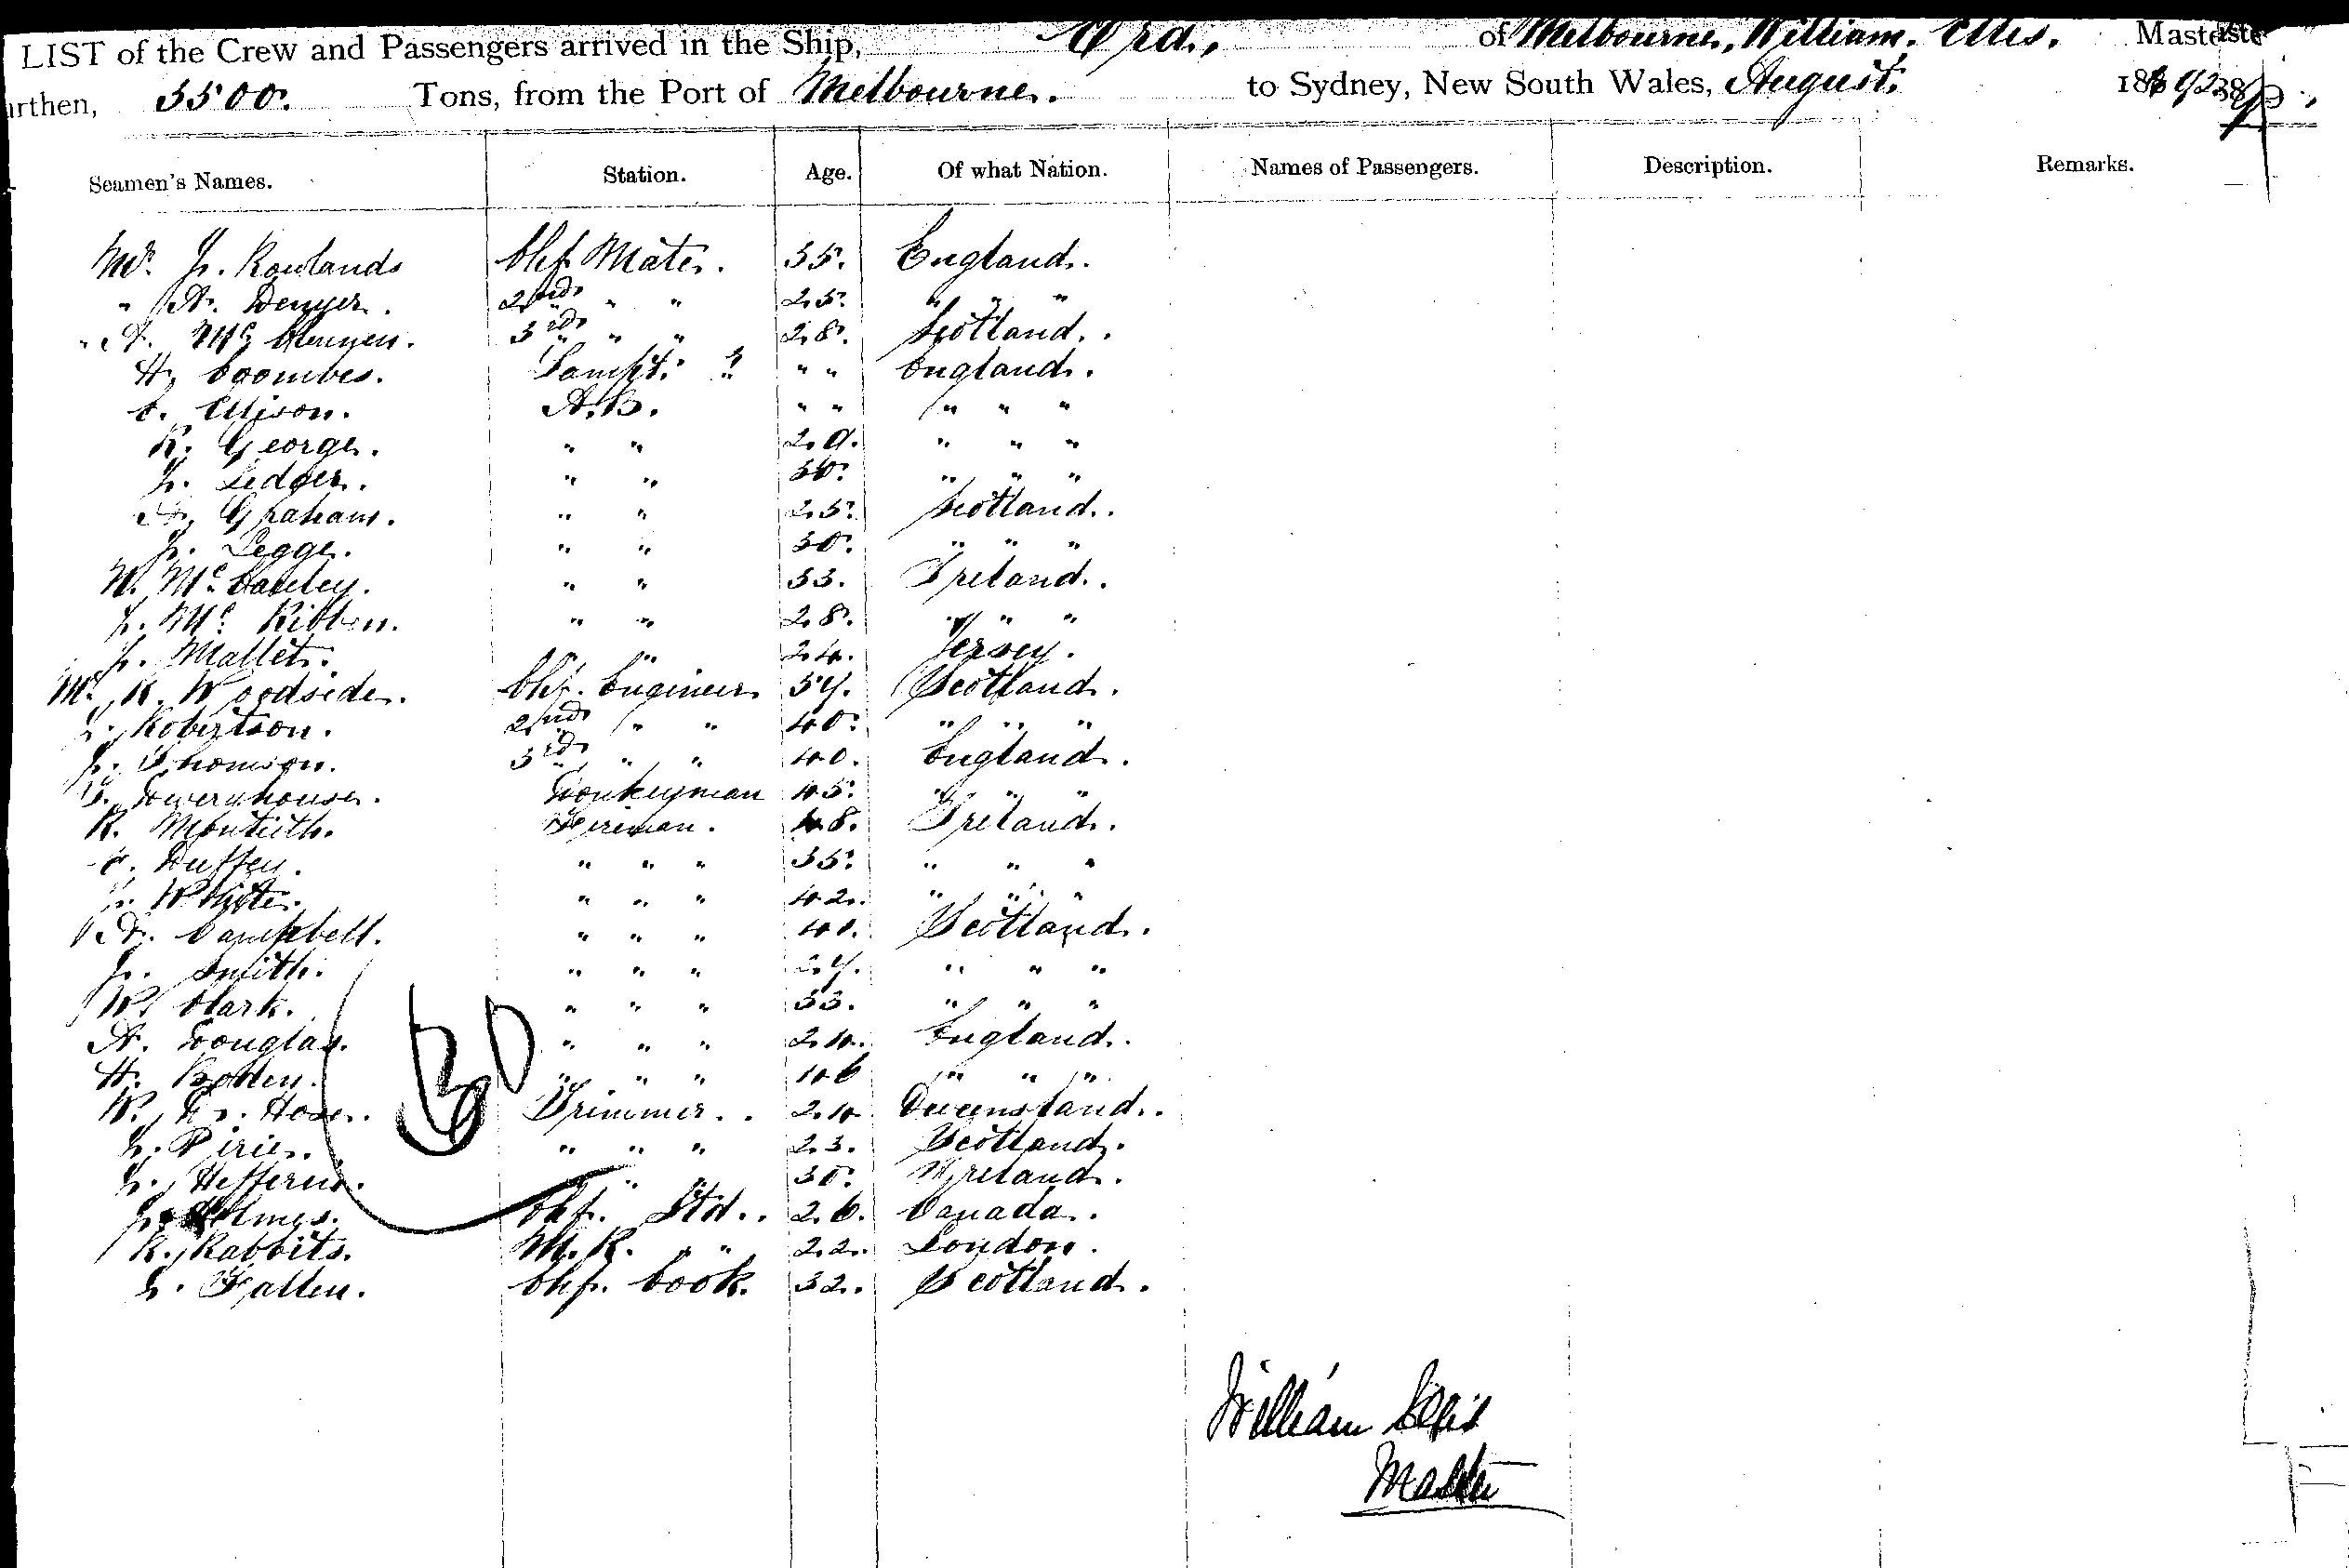 LIST of the Crew and Passengers arrived in the Ship, Ord, of Melbourne, William. Ellis. Master
urthen, 3500. Tons, from the Port of Melbourne. to Sydney, New South Wales, August.
Seamen's Names. Station. Age. Of what Nation. Names of Passengers. Description. Remarks.
Mr. J. Rowlands Chf. Mate. 35. England.
" A. Denyer. 2nd " " 25. " " "
" A. Mc 3rd " " 28. Scotland.
H. Coombes. Lampt. England.
C. Ellison. A.B. " " " " "
R. George. " " 29. " " "
J. Ledger. " " 30. " " "
A. Graham. " " 25. Scotland.
J. Legge. " " 30. " " "
W. Mc Cauley. " " 33. Ireland.
J. Mc Kibben. " " 28. " " "
J. Mallet. " " 24. Jersey.
Mr. R. Woodside. Chf. Engineer 54. Scotland.
Robertson. 2nd " " 40. " " "
J. Thomson. 3rd " " 40. England.
Donkeyman 45. " " "
R. Monteith. Fireman. 48. Ireland.
Duffey. " " " 35. " " "
J. White. " " " 42. " " "
A. Campbell. " " " Scotland.
J. Smith. " " " " " "
W. Clark. " " " 33. " " "
A. Douglas. " " " 24. England.
H. Boden. " " " 46 " " "
W. Hose. Trimmer. 24. Queensland.
J. Pirie. " " " 23. Scotland.
J. " " " 30. Ireland.
J. Holmes. Chf. Std. 26. Canada.
R. Rabbits. M.R. " " 22. London.
Chf. Cook. 32. Scotland.
30
William Ellis
Master